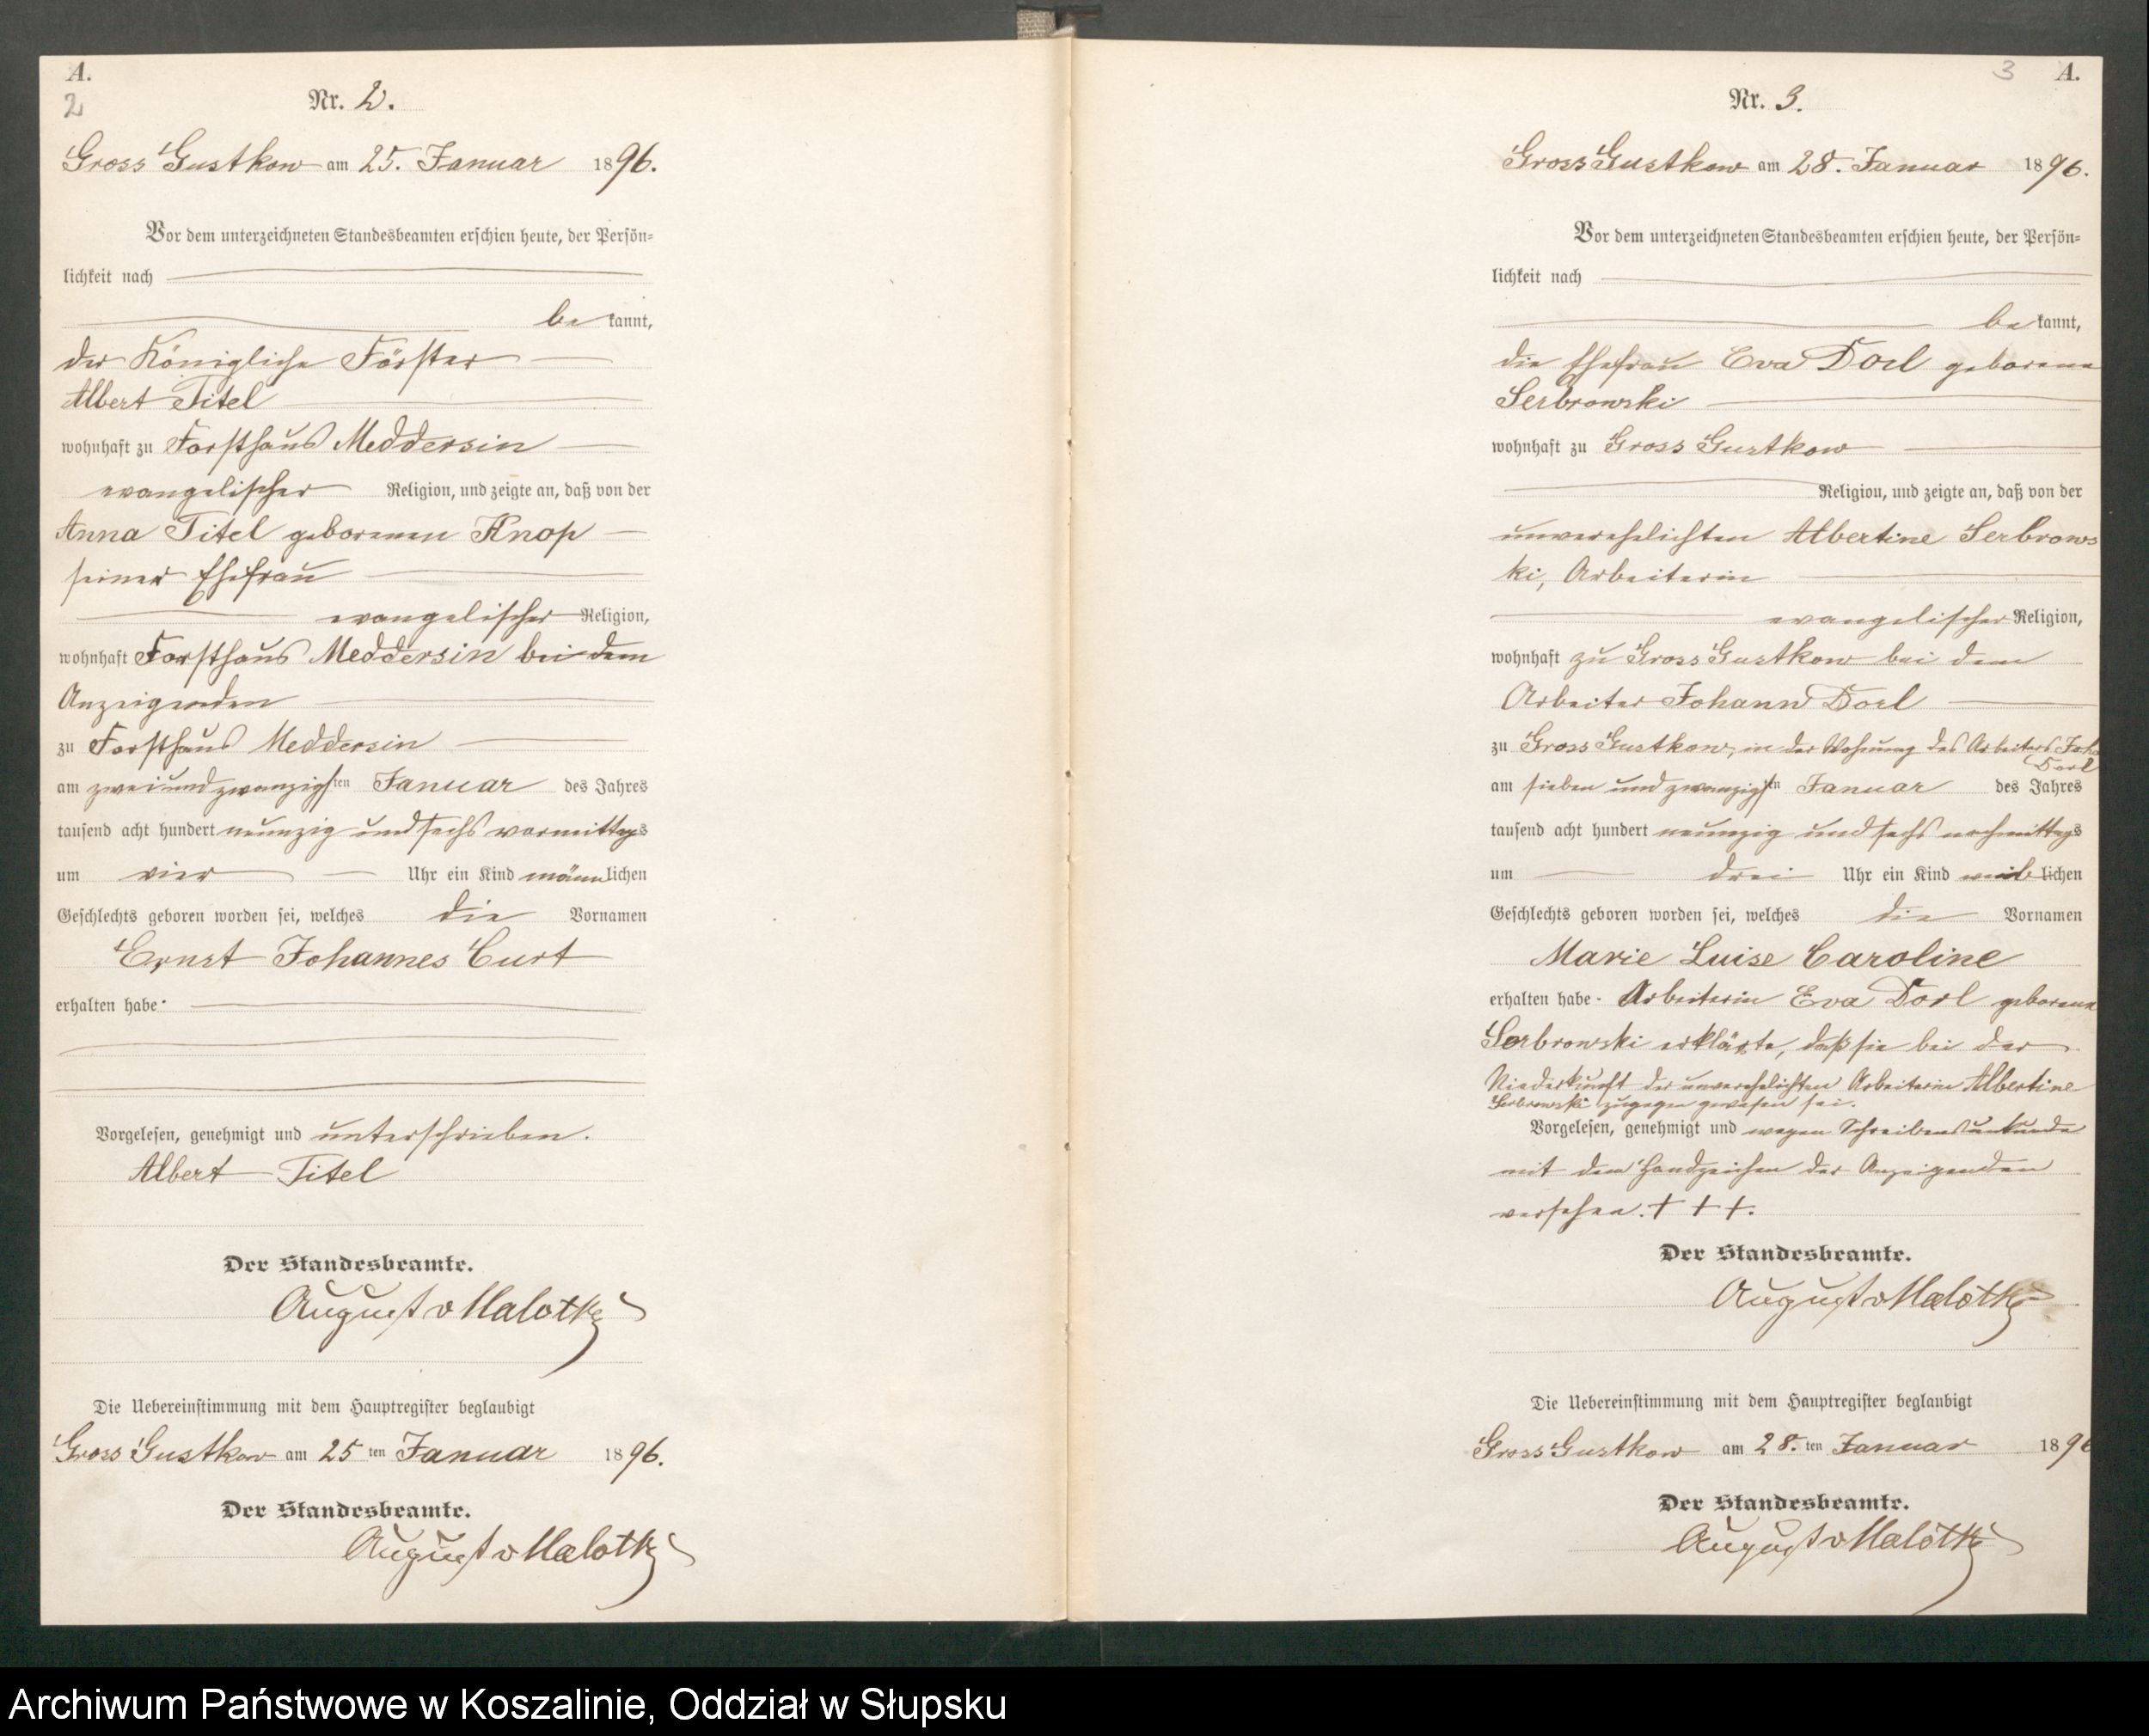 A.
2
Nr. 2.
Gross Gustkow am 25. Januar 1896.
Vor dem unterzeichneten Standesbeamten erschien heute, der Persön-
lichkeit nach
be kannt,
der Königliche Förster
Albert Titel
wohnhaft zu Forsthaus Meddersin
evangelischer Religion, und zeigte an, daß von der
Anna Titel geborenen Knop
seiner Ehefrau
evangelischer Religion,
wohnhaft Forsthaus Meddersin bei dem
Anzeigenden
zu Forsthaus Meddersin
am zwei und zwanzigsten Januar des Jahres
tausend acht hundert neunzig und sechs vormittags
um vier Uhr ein Kind männlichen
Geschlechts geboren worden sei, welches die Vornamen
Ernst Johannes Curt
erhalten habe.
Vorgelesen, genehmigt und unterschrieben.
Albert Titel
Der Standesbeamte.
August v Malotki
Die Uebereinstimmung mit dem Hauptregister beglaubigt
Gross Gustkow am 25 ten Januar 1896.
Der Standesbeamte.
August v Malotki
3 A.
Nr. 3.
Gross Gustkow am 28. Januar 1896.
Vor dem unterzeichneten Standesbeamten erschien heute, der Persön-
lichkeit nach
be kannt,
die Ehefrau Eva geborene
Serbrowski
wohnhaft zu Gross Gustkow
Religion, und zeigte an, daß von der
unverehelichten Albertine Serbrows
ki, Arbeiterin
evangelischer Religion,
wohnhaft zu Gross Gustkow bei dem
Arbeiter Johann
zu Gross Gustkow, in der Wohnung des Arbeiters Joh
am sieben und zwanzigsten Januar des Jahres
tausend acht hundert neunzig und sechs nachmittags
um drei Uhr ein Kind weiblichen
Geschlechts geboren worden sei, welches die Vornamen
Marie Luise Caroline
erhalten habe. Arbeiterin Eva geborene
Serbrowski erklärte, daß sie bei der
Niederkunft der unverehelichten Arbeiterin Albertine
Serbrowski zugegen gewesen sei.
Vorgelesen, genehmigt und wegen Schreibensunkunde
mit dem Handzeichen der Anzeigenden
versehen. + + +.
Der Standesbeamte.
August v Malotki
Die Uebereinstimmung mit dem Hauptregister beglaubigt
Gross Gustkow am 28. ten Januar 1896
Der Standesbeamte.
August v Malotki
Archiwum Państwowe w Koszalinie, Oddział w Słupsku